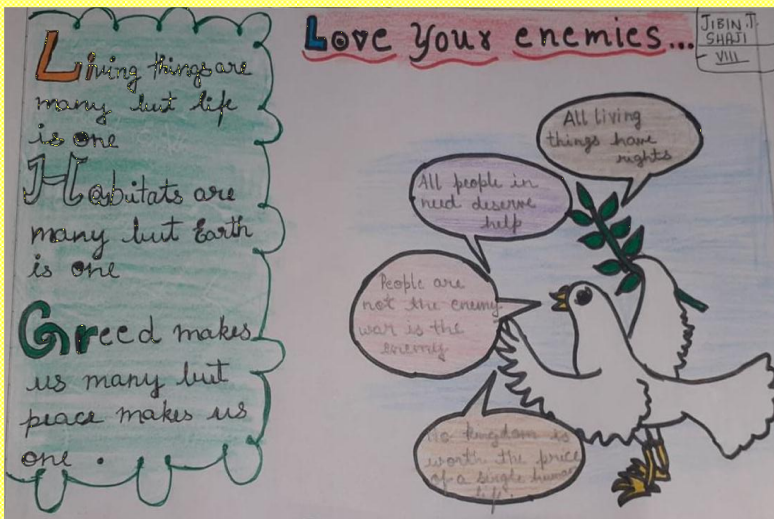 Living things are
many but life
is one
Habitats are
many but Earth
is one
Greed makes
us many but
peace makes us
one .
Love Your enemies...
JIBIN T.
SHAJI
VIII
All living
things have
rights
All people in
need deserve
help
People are
not the enemy
war is the
enemy
No kingdom is
worth the price
of a single human
life.